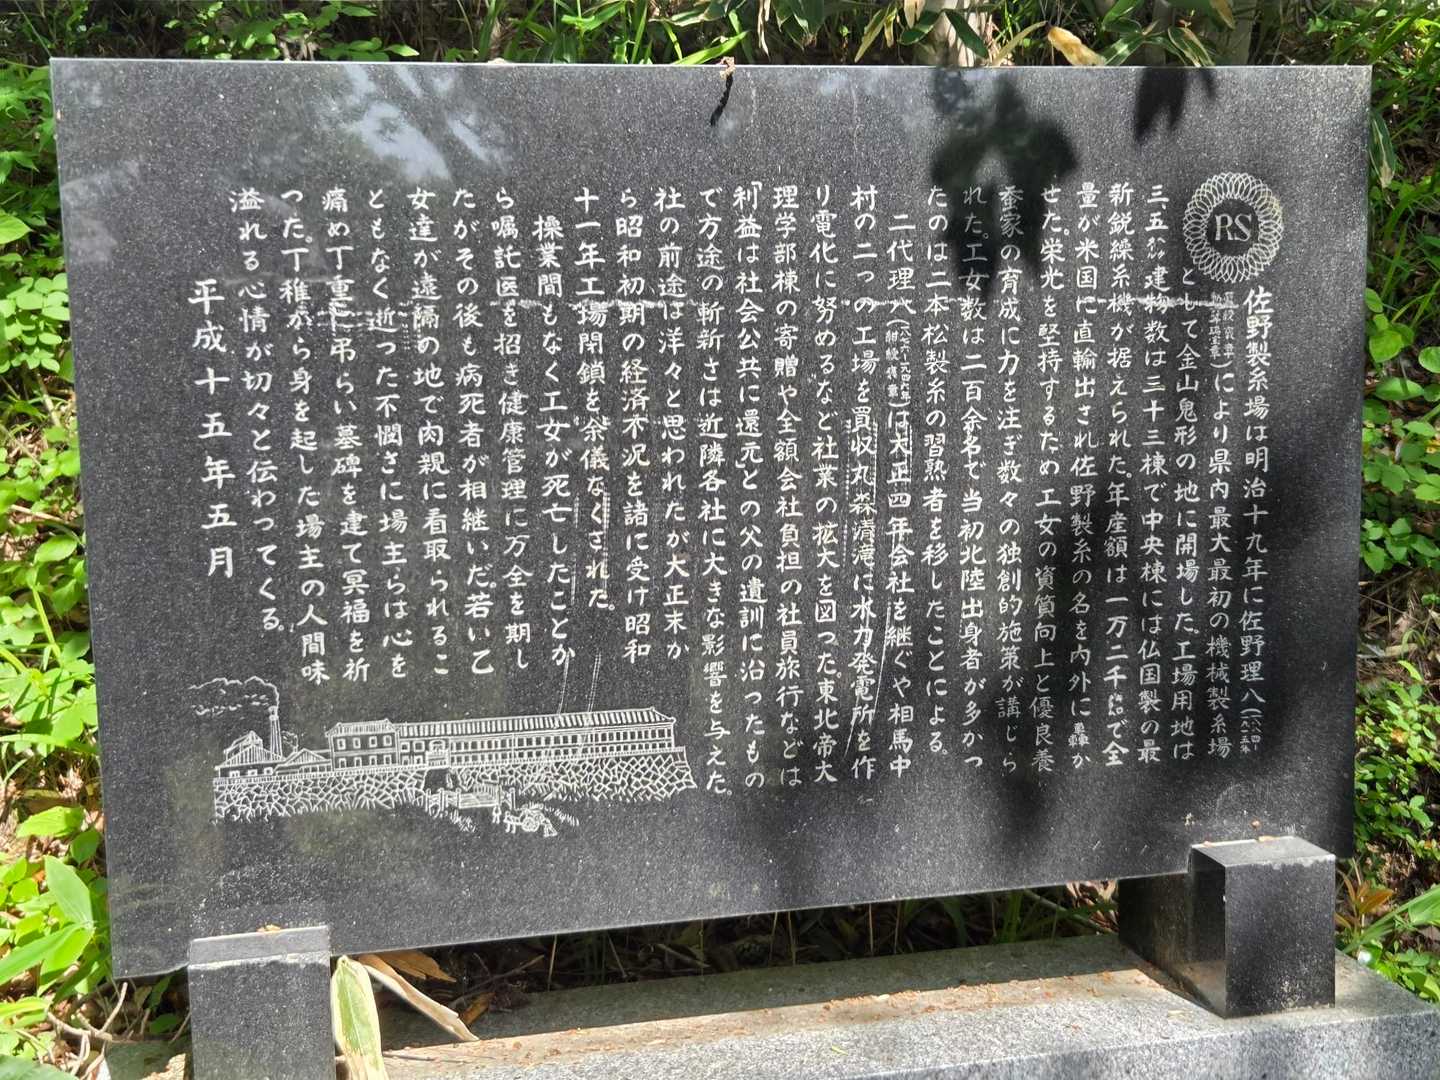 RS
佐野製糸場は明治十九年に佐野理八
により県内最大最初の機械製糸場
として金山鬼形の地に開場した。工場用地は
三、五 建物数は三十三棟で中央棟には仏国製の最
新鋭繰糸機が据えられた。年産額は一万二千 で全
量が米国に直輸出され佐野製糸の名を内外に轟か
せた。栄光を堅持するため工女の資質向上と優良養
蚕家の育成に力を注ぎ数々の独創的施策が講じら
れた。工女数は二百余名で当初北陸出身者が多かっ
たのは二本松製糸の習熟者を移したことによる。
二代理八(一八七六-一九四六年 紺綬褒章)は大正四年会社を継ぐや相馬中
村の二つの工場を買収丸森清滝に水力発電所を作
り電化に努めるなど社業の拡大を図った。東北帝大
理学部棟の寄贈や全額会社負担の社員旅行などは
「利益は社会公共に還元」との父の遺訓に沿ったもの
で方途の斬新さは近隣各社に大きな影響を与えた。
社の前途は洋々と思われたが大正末か
ら昭和初期の経済不況を諸に受け昭和
十一年工場閉鎖を余儀なくされた。
操業間もなく工女が死亡したことか
ら嘱託医を招き健康管理に万全を期し
たがその後も病死者が相継いだ。若い乙
女達が遠隔の地で肉親に看取られるこ
ともなく逝った不憫さに場主らは心を
痛め丁重に弔らい墓碑を建て冥福を祈
った。丁稚から身を起した場主の人間味
溢れる心情が切々と伝わってくる。
平成十五年五月